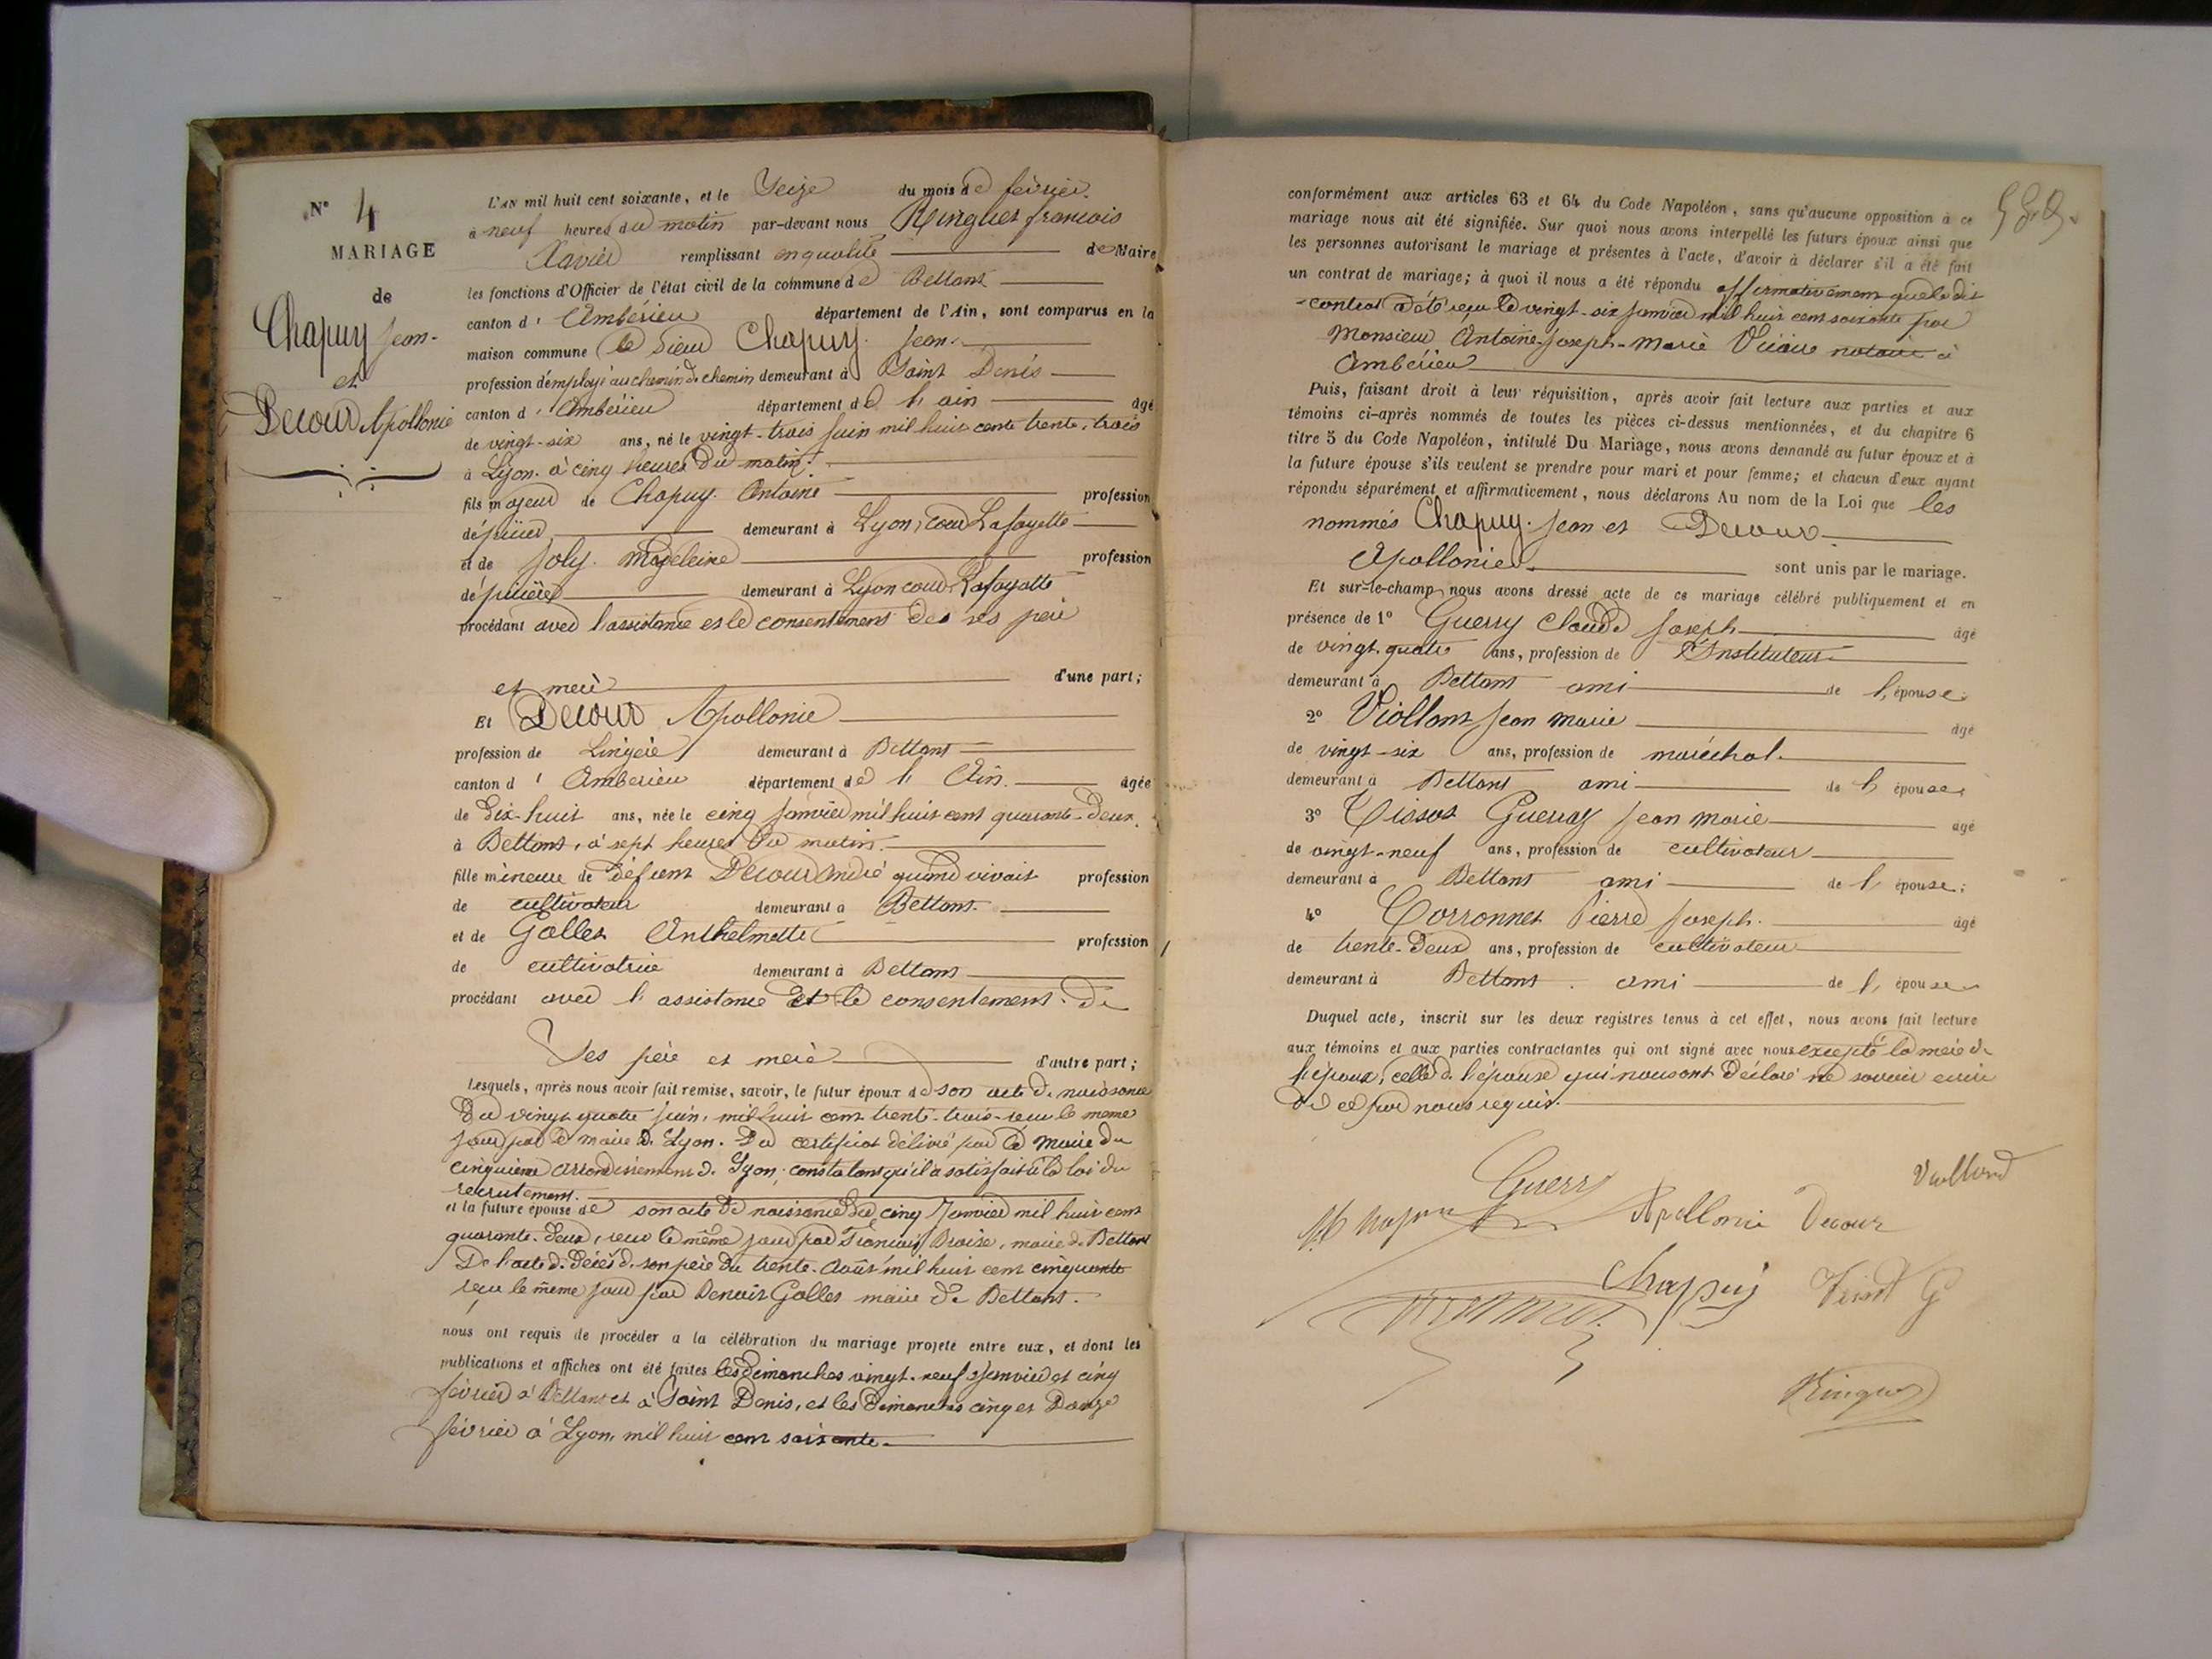 N° 4
MARIAGE
de
Chapuy Jean
et
Decour Apollonie
L'AN mil huit cent soixante, et le Seize du mois de février
à neuf heures du matin par-devant nous Ringuet françois
Xavier remplissant en qualité de Maire
les fonctions d'Officier de l'état civil de la commune de Bettant
canton d' Ambérieu département de l'Ain, sont comparus en la
maison commune le sieur Chapuy Jean
profession d'employé au chemin de chemin demeurant à Saint Denis
canton d' Ambérieu département de l'ain âgé
de vingt-six ans, né le vingt-trois juin mil huit cent trente-trois
à Lyon à cinq heures du matin
fils majeur de Chapuy Antoine profession
d'épicier demeurant à Lyon, cour Lafayette
et de Joly Magdeleine profession
d'épicière demeurant à Lyon cour Lafayette
procédant avec l'assistance et le consentement des ses père
et mère d'une part;
Et Decour Apollonie
profession de Lingère demeurant à Bettant
canton d' Ambérieu département de l' Ain âgée
de dix-huit ans, née le cinq janvier mil huit cent quarante-deux
à Bettant, à sept heures du matin
fille mineure de défunt Decour André quand vivait profession
de cultivateur demeurant à Bettant
et de Gallet Anthelmette profession
de cultivatrice demeurant à Bettant
procédant avec l'assistance et le consentement de
Ses père et mère d'autre part;
Lesquels, après nous avoir fait remise, savoir, le futur époux de son acte de naissance
du vingt quatre juin, mil huit cent trente-trois reçu le même
jour par le maire de Lyon. Du certificat délivré par le maire du
cinquième arrondissement de Lyon, constatant qu'il a satisfait à la loi du
recrutement.
et la future épouse de son acte de naissance du cinq Janvier mil huit cent
quarante-deux, reçu le même jour par François Braise, maire de Bettant
De l'acte de décès de son père du trente Août mil huit cent cinquante
reçu le même jour par Benoit Gallet maire de Bettant.
nous ont requis de procéder à la célébration du mariage projeté entre eux, et dont les
publications et affiches ont été faites les dimanches vingt-neuf Janvier et cinq
février à Bettant et à Saint Denis, et les dimanches cinq et Douze
février à Lyon, mil huit cent soixante.
conformément aux articles 63 et 64 du Code Napoléon, sans qu'aucune opposition à ce
mariage nous ait été signifiée. Sur quoi nous avons interpellé les futurs époux ainsi que
les personnes autorisant le mariage et présentes à l'acte, d'avoir à déclarer s'il a été fait
un contrat de mariage; à quoi il nous a été répondu affirmativement que le dit
contrat a été reçu le vingt-six janvier mil huit cent soixante par
Monsieur Antoine-Joseph-Marie notaire à
Ambérieu
Puis, faisant droit à leur réquisition, après avoir fait lecture aux parties et aux
témoins ci-après nommés de toutes les pièces ci-dessus mentionnées, et du chapitre 6
titre 5 du Code Napoléon, intitulé Du Mariage, nous avons demandé au futur époux et à
la future épouse s'ils veulent se prendre pour mari et pour femme; et chacun d'eux ayant
répondu séparément et affirmativement, nous déclarons Au nom de la Loi que les
nommés Chapuy Jean et Decour
Apollonie sont unis par le mariage.
Et sur-le-champ nous avons dressé acte de ce mariage célébré publiquement et en
présence de 1° Guerry Claude Joseph âgé
de vingt quatre ans, profession de Instituteur
demeurant à Bettant ami de l'épouse
2° Viollant Jean Marie âgé
de vingt-six ans, profession de maréchal
demeurant à Bettant ami de l'épouse
3° Tissot Guerraz Jean Marie âgé
de vingt-neuf ans, profession de cultivateur
demeurant à Bettant ami de l'épouse;
4° Corronnet Pierre Joseph âgé
de trente-deux ans, profession de cultivateur
demeurant à Bettant ami de l'épouse
Duquel acte, inscrit sur les deux registres tenus à cet effet, nous avons fait lecture
aux témoins et aux parties contractantes qui ont signé avec nous excepté la mère de
l'époux, celle de l'épouse qui nous ont déclaré ne savoir écrire
de ce par nous requis.
Guerry
Apollonie Decour
Chapuy
Ringuet